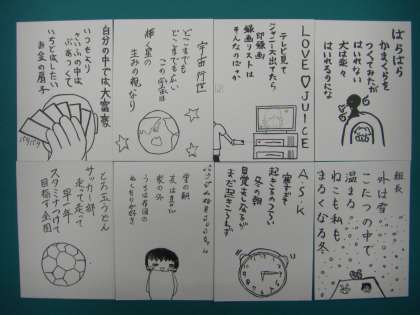 ばらばら
かまくらを
つくてみたが
はいれない
犬は楽々
はいれるのにな
LOVE♡JUICE
テレビ見て
ジャニー大出てたら
即録画
録画リストは
そんなのばっか
宇宙
どこまでも
どこまでもふかい
この宇宙は
輝く星の
生みの親なり
自分の中では大富豪
いつもより
さいふの中は
ぶあつくて
いちどはしたい
お金の扇子
組長
外は雪
こたつの中で
温まる
ねこも私も
まるくなる冬
A.S.K
寒すぎて
起きるのつらい
冬の朝
目覚ましなるが
まだ起きこらず
里の朝
友は言だ
家の外
とろ玉うどん
サッカー部
走って走って
早一年
スタミナつけて
目指す全国